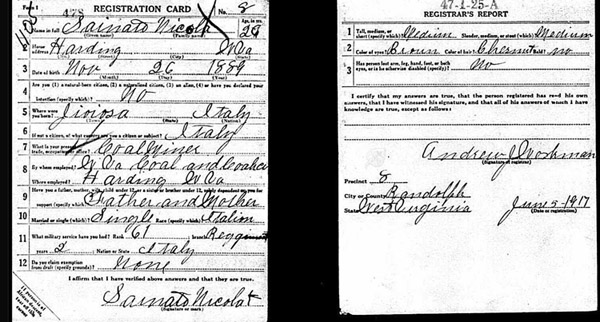 Form 1
478
REGISTRATION CARD
No. 8
1 Name in full Sainato Nicola
(Given name) (Family name)
Age, in yrs.
2 Home address Harding W Va
3 Date of birth Nov 26 1889
(Month) (Day) (Year)
4 Are you (1) a natural-born citizen, (2) a naturalized citizen, (3) an alien, (4) or have you declared your intention (specify which)? No
5 Where were you born? Jioiosa Italy
(Town) (State) (Nation)
6 If not a citizen, of what country are you a citizen or subject? Italy
7 What is your present trade, occupation, Coal Miner
8 By whom employed? W Va Coal and Coake Co
Where employed? Harding W Va
9 Have you a father, mother, wife, child under 12, or a sister or brother under 12, solely dependent on you for support (specify which)? Father and Mother
10 Married or single (which)? Single Race (specify which)? Italin
11 What military service have you had? Rank 61 branch
years 2 Nation or State Italy
12 Do you claim exemption from draft (specify grounds)? None
I affirm that I have verified above answers and that they are true.
Sainato Nicola
(Signature or mark)
47-1-25-A
REGISTRAR'S REPORT
1 Tall, medium, or short (specify which)? Medium Slender, medium, or stout (which)? Medium
2 Color of eyes? Broun Color of hair? Chesnut no
3 Has person lost arm, leg, hand, foot, or both eyes, or is he otherwise disabled (specify)? No
I certify that my answers are true, that the person registered has read his own answers, that I have witnessed his signature, and that all of his answers of which I have knowledge are true, except as follows:
Andrew J Workman
(Signature of registrar)
Precinct 8
City or County Randolph
State West Virginia
June 5-1917
(Date of registration)